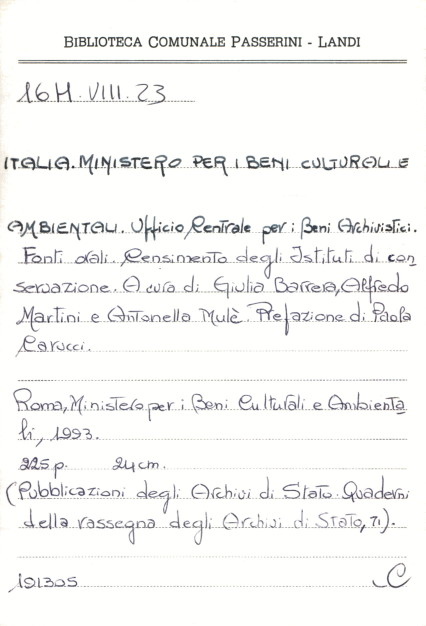 BIBLIOTECA COMUNALE PASSERINI - LANDI
16H.VIII.23
ITALIA. MINISTERO PER I BENI CULTURALI E
AMBIENTALI. Ufficio Centrale per i Beni Archivistici.
Fonti orali. Censimento degli Istituti di con
servazione. A cura di Giulia Barrera, Alfredo
Martini e Antonella Mulè. Prefazione di Paola
Carucci.
Roma, Ministero per i Beni Culturali e Ambienta
li, 1993.
225 p. 24 cm.
(Pubblicazioni degli Archivi di Stato. Quaderni
della rassegna degli Archivi di Stato, 71).
191305 C